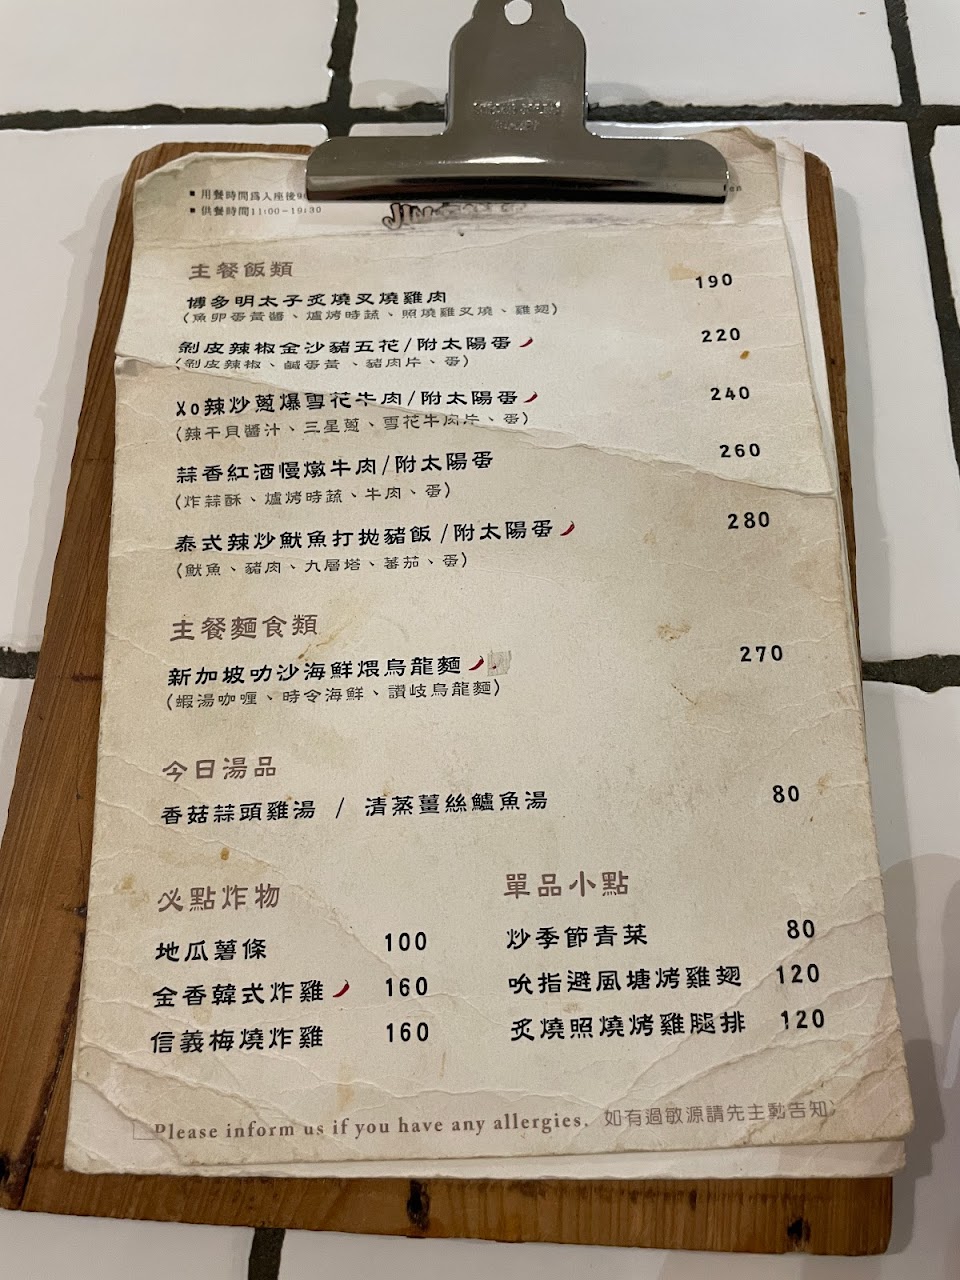 ▪ 用餐時間為入座後9
▪ 供餐時間11:00-19:30
主餐飯類
博多明太子炙燒叉燒雞肉 190
(魚卵蛋黃醬、爐烤時蔬、照燒雞叉燒、雞翅)
剝皮辣椒金沙豬五花/附太陽蛋 220
(剝皮辣椒、鹹蛋黃、豬肉片、蛋)
Xo辣炒蔥爆雪花牛肉/附太陽蛋 240
(辣干貝醬汁、三星蔥、雪花牛肉片、蛋)
蒜香紅酒慢燉牛肉/附太陽蛋 260
(炸蒜酥、爐烤時蔬、牛肉、蛋)
泰式辣炒魷魚打拋豬飯/附太陽蛋 280
(魷魚、豬肉、九層塔、蕃茄、蛋)
主餐麵食類
新加坡叻沙海鮮煨烏龍麵 270
(蝦湯咖喱、時令海鮮、讚岐烏龍麵)
今日湯品
香菇蒜頭雞湯 / 清蒸薑絲鱸魚湯 80
必點炸物
地瓜薯條 100
金香韓式炸雞 160
信義梅燒炸雞 160
單品小點
炒季節青菜 80
吮指避風塘烤雞翅 120
炙燒照燒烤雞腿排 120
Please inform us if you have any allergies. 如有過敏源請先主動告知